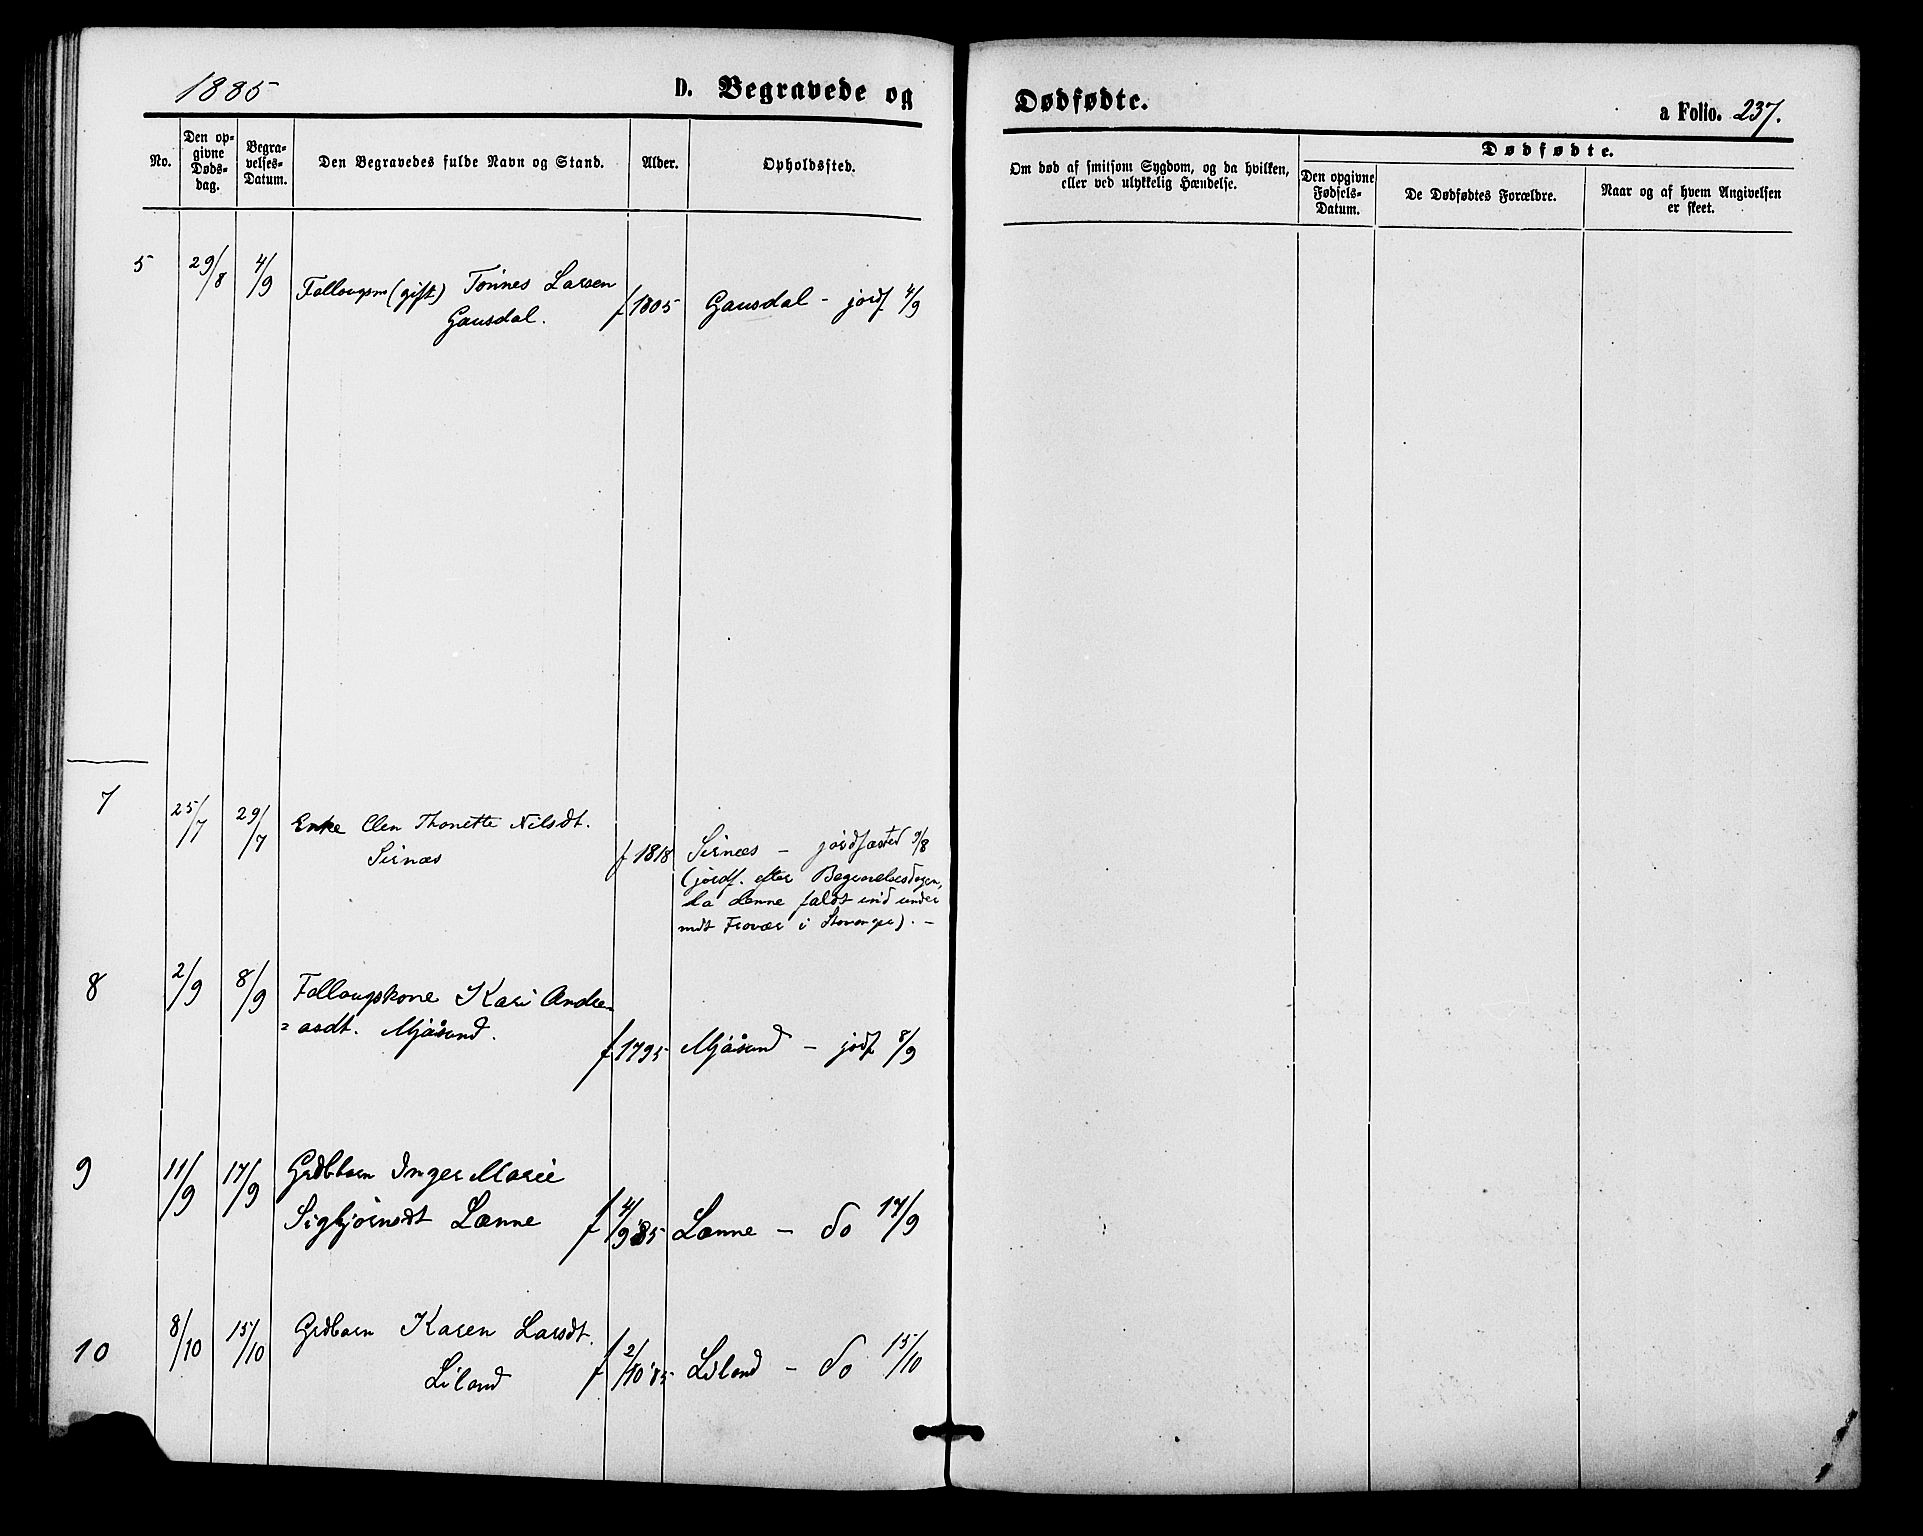 1885
D. Begravede og
Dødfødte.
a Folio. 237.
No.
Den op-
givne
Døds-
dag.
Begra-
velses-
Datum.
Den Begravedes fulde Navn og Stand.
Alder.
Opholdssted.
Om død af smitsom Sygdom, og da hvilken,
eller ved ulykkelig Hændelse.
Dødfødte.
Den opgivne
Fødsels-
Datum.
De Dødfødtes Forældre.
Naar og af hvem Angivelsen
er skeet.
5 29/8 4/9 Follougsm (gift) Tönnes Larsen
Gausdal. f 1805 Gausdal - jordf 4/9
7 25/7 29/7 Enke Elen Thonette Nilsdt.
Sirnæs f 1818 Sirnæs - jordfæsted 9/8
(jordf. efter Begravelsesdagen,
da denne faldt ind under
mit Fravær i Stavanger). -
8 2/9 8/9 Follougskone Kari Andre-
=asdt. Mjåsund. f 1795 Mjåsund - jordf 8/9
9 11/9 17/9 Grdbbarn Inger Marie
Sigbjørnsdt Lænne f 4/9 85 Lænne - do 17/9
10 8/10 15/10 Grdbarn Karen Larsdt.
Liland f 2/10 '85 Liland - do 15/10